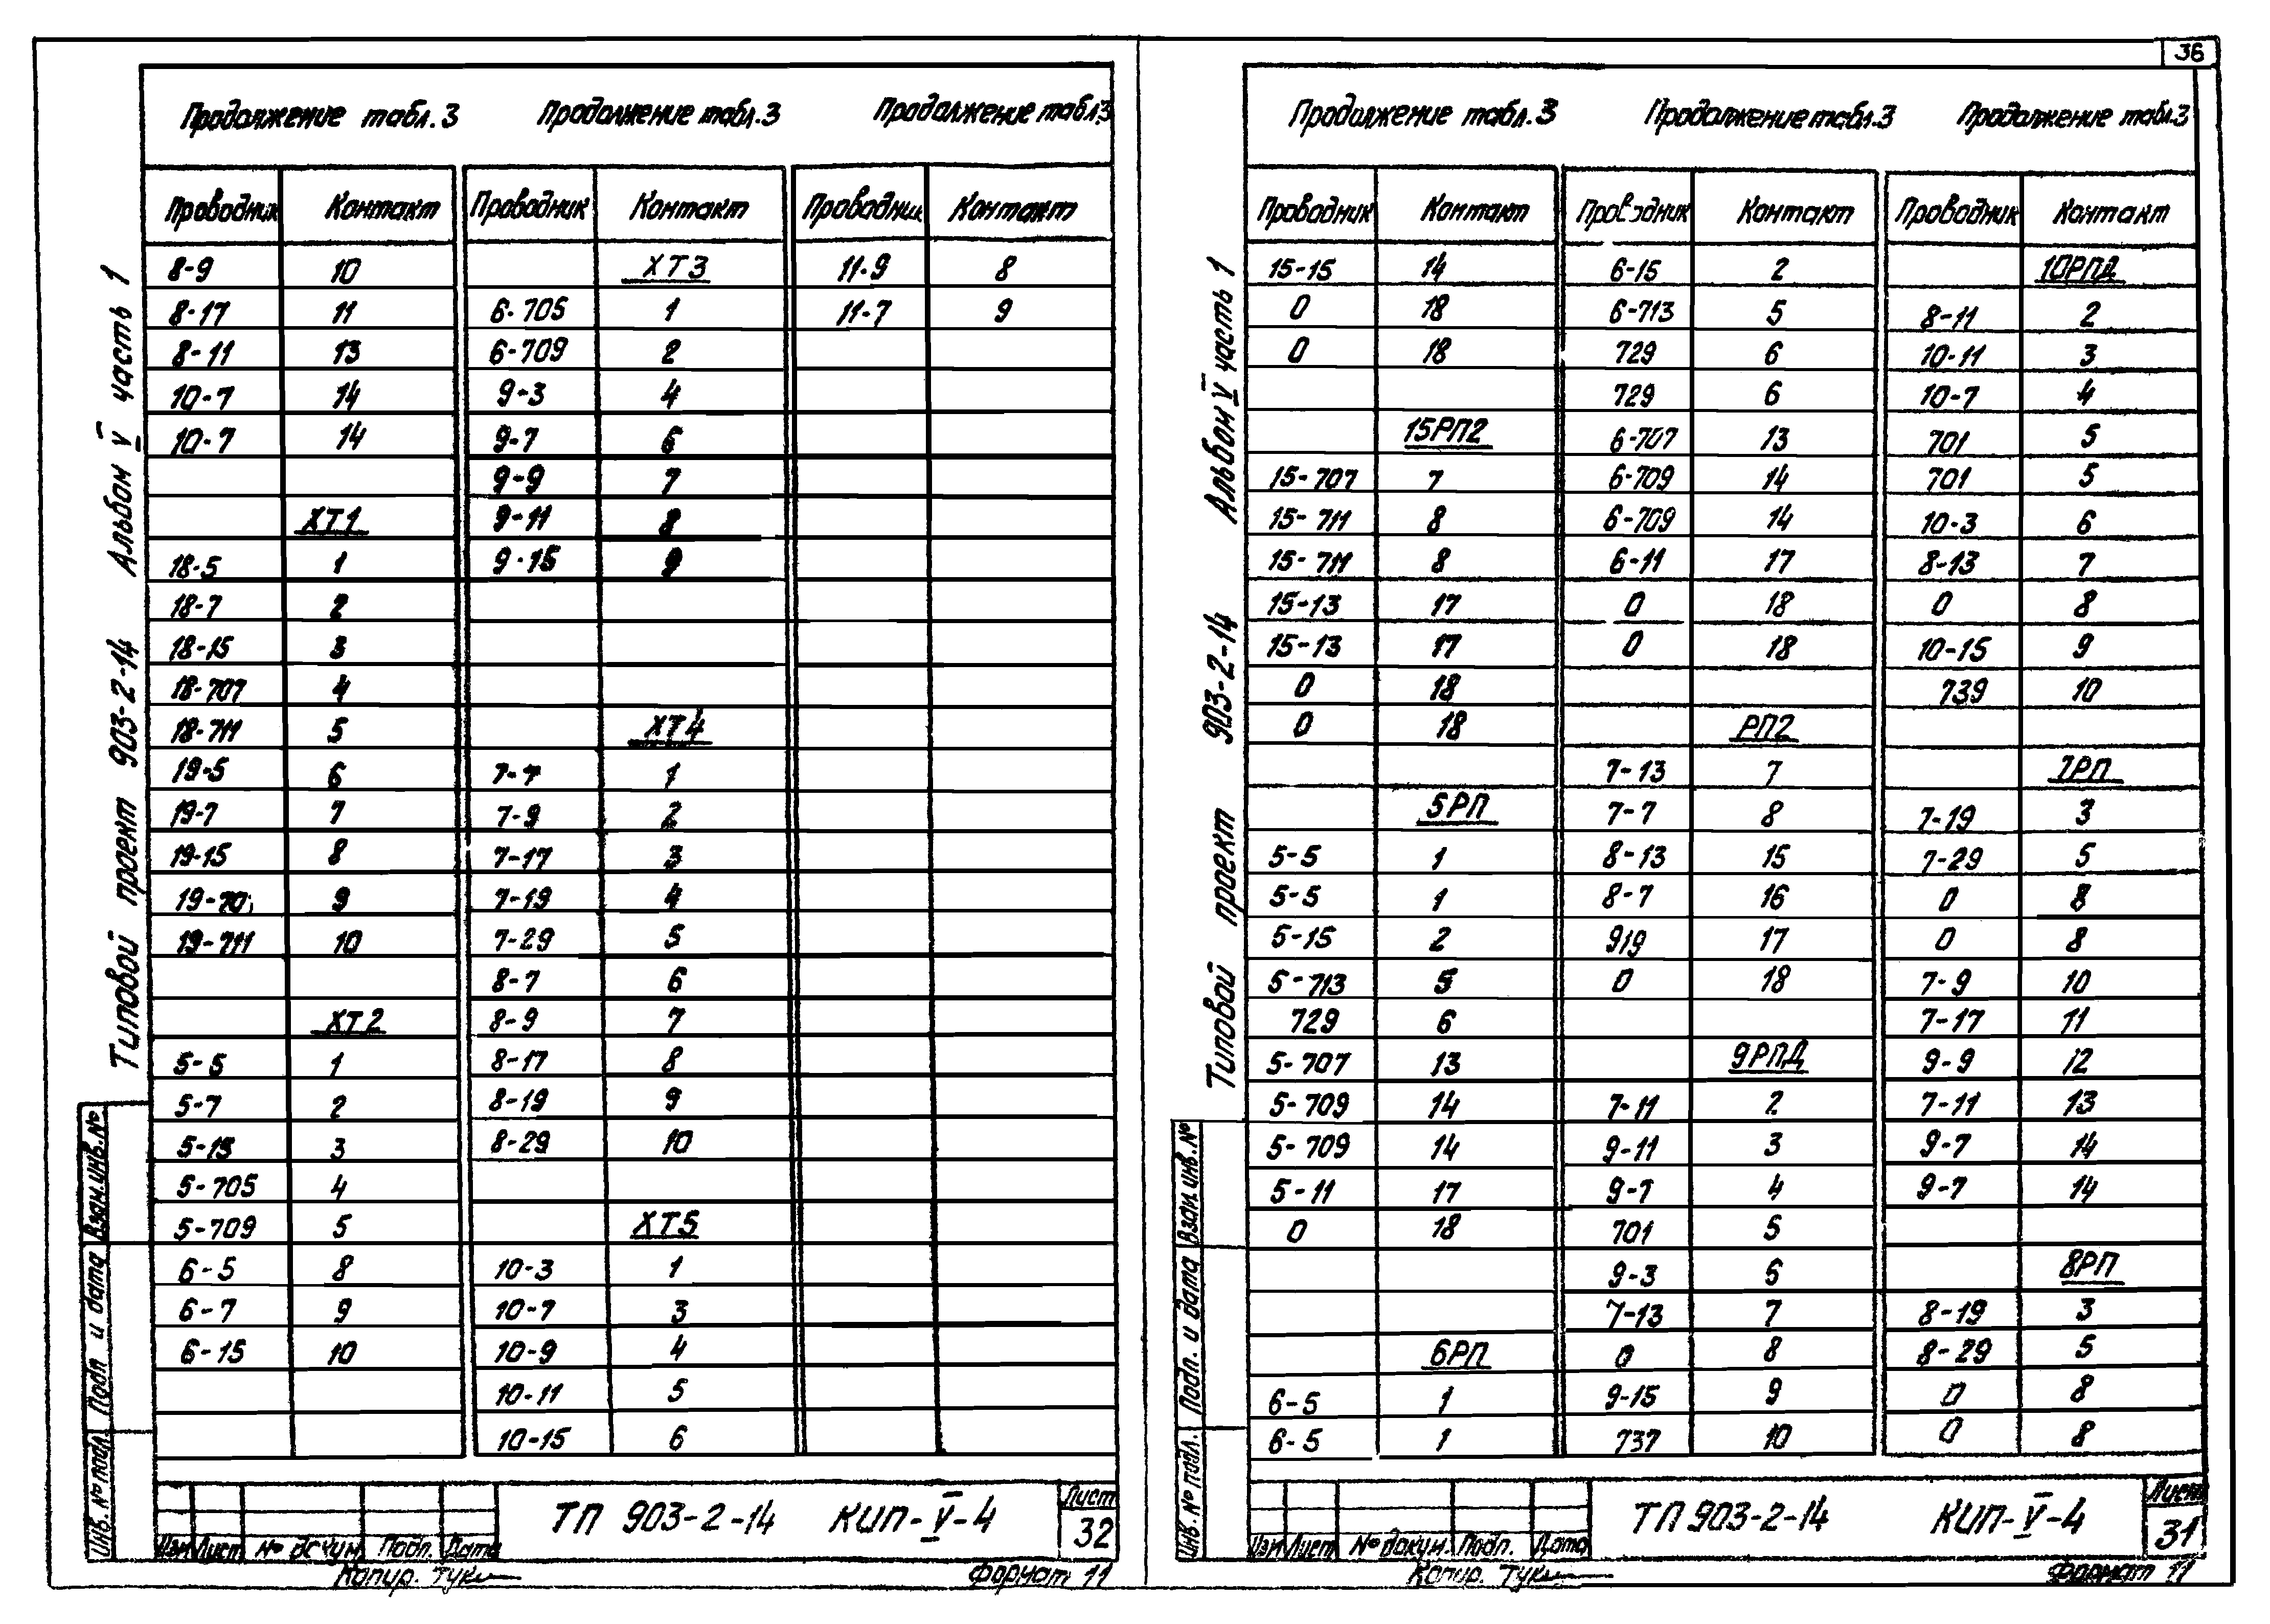 36
Продолжение табл. 3
Проводник Контакт
8-9 10
8-17 11
8-11 13
10-7 14
10-7 14
ХТ1
18-5 1
18-7 2
18-15 3
18-707 4
18-711 5
19-5 6
19-7 7
19-15 8
19-70 9
19-711 10
ХТ2
5-5 1
5-7 2
5-15 3
5-705 4
5-709 5
6-5 8
6-7 9
6-15 10
Продолжение табл. 3
Проводник Контакт
ХТ3
6-705 1
6-709 2
9-3 4
9-7 6
9-9 7
9-11 8
9-15 9
ХТ4
7-7 1
7-9 2
7-17 3
7-19 4
7-29 5
8-7 6
8-9 7
8-17 8
8-19 9
8-29 10
ХТ5
10-3 1
10-7 3
10-9 4
10-11 5
10-15 6
Продолжение табл. 3
Проводник Контакт
11-9 8
11-7 9
Типовой проект 903-2-14 Альбом V часть 1
Инв. № подл. Подп и дата Взам. инв. №
Изм Лист № докум. Подп. Дата
ТП 903-2-14 КИП-V-4
Лист
32
Копир. Туки
Формат 11
Продолжение табл. 3
Проводник Контакт
15-15 14
0 18
0 18
15РП2
15-707 7
15-711 8
15-711 8
15-13 17
15-13 17
0 18
0 18
5РП
5-5 1
5-5 1
5-15 2
5-713 5
729 6
5-707 13
5-709 14
5-709 14
5-11 17
0 18
6РП
6-5 1
6-5 1
Продолжение табл. 3
Проводник Контакт
6-15 2
6-713 5
729 6
729 6
6-707 13
6-709 14
6-709 14
6-11 17
0 18
0 18
РП2
7-13 7
7-7 8
8-13 15
8-7 16
919 17
0 18
9РПД
7-11 2
9-11 3
9-7 4
701 5
9-3 6
7-13 7
0 8
9-15 9
737 10
Продолжение табл. 3
Проводник Контакт
10РПД
8-11 2
10-11 3
10-7 4
701 5
701 5
10-3 6
8-13 7
0 8
10-15 9
739 10
7РП
7-19 3
7-29 5
0 8
0 8
7-9 10
7-17 11
9-9 12
7-11 13
9-7 14
9-7 14
8РП
8-19 3
8-29 5
0 8
0 8
Типовой проект 903-2-14 Альбом V часть 1
Инв. № подл. Подп. и дата Взам. инв. №
Изм Лист № докум. Подп. Дата
ТП 903-2-14 КИП-V-4
Лист
31
Копир. Туки
Формат 11